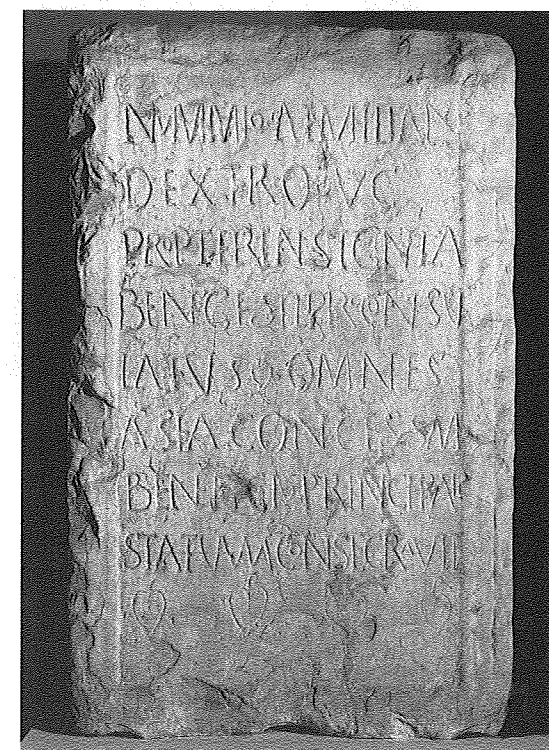 NVMMIO AEMILIAN
DEXTRO VC
PROPTER INSIGNIA
BENE GESTI PROCONSV
LATVS Q OMNES
ASIA CONCESSVM
BENEFICIO PRINCIPAL
STATVAM CONSECRAVIT